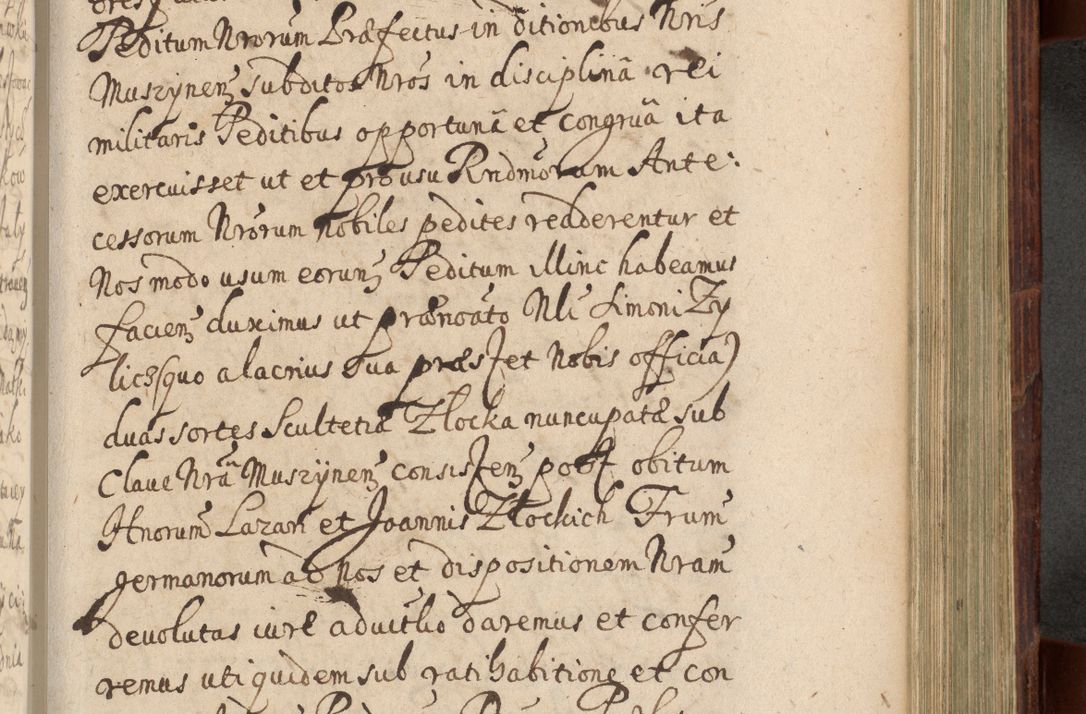 Peditum Nrorum Præfectus in ditionebus Nris
Muszynen̄ subditos Nros in disciplinā rei
militaris Peditibus opportunā et congruā ita
exercuisset ut et pro usu Rndmorum Ante:
cessorum Nrorum nobiles pedites redderentur et
Nos modo usum eorum Peditum illinc habeamus
facien̄ duximus ut prænoāto Nli Simoni Zy
licz (quo alacrius sua præst et Nobis officia)
duas sortes Scultetiæ Złocka nuncupatæ sub
Claue Nrā Muszynen̄ consisten̄ post obitum
Hnorum Lazari et Joannis Złockich Frum
germanorum ad Nos et dispositionem Nram
deuolutas iure aduitlio daremus et confer
remus uti quidem sub ratihabitione et con